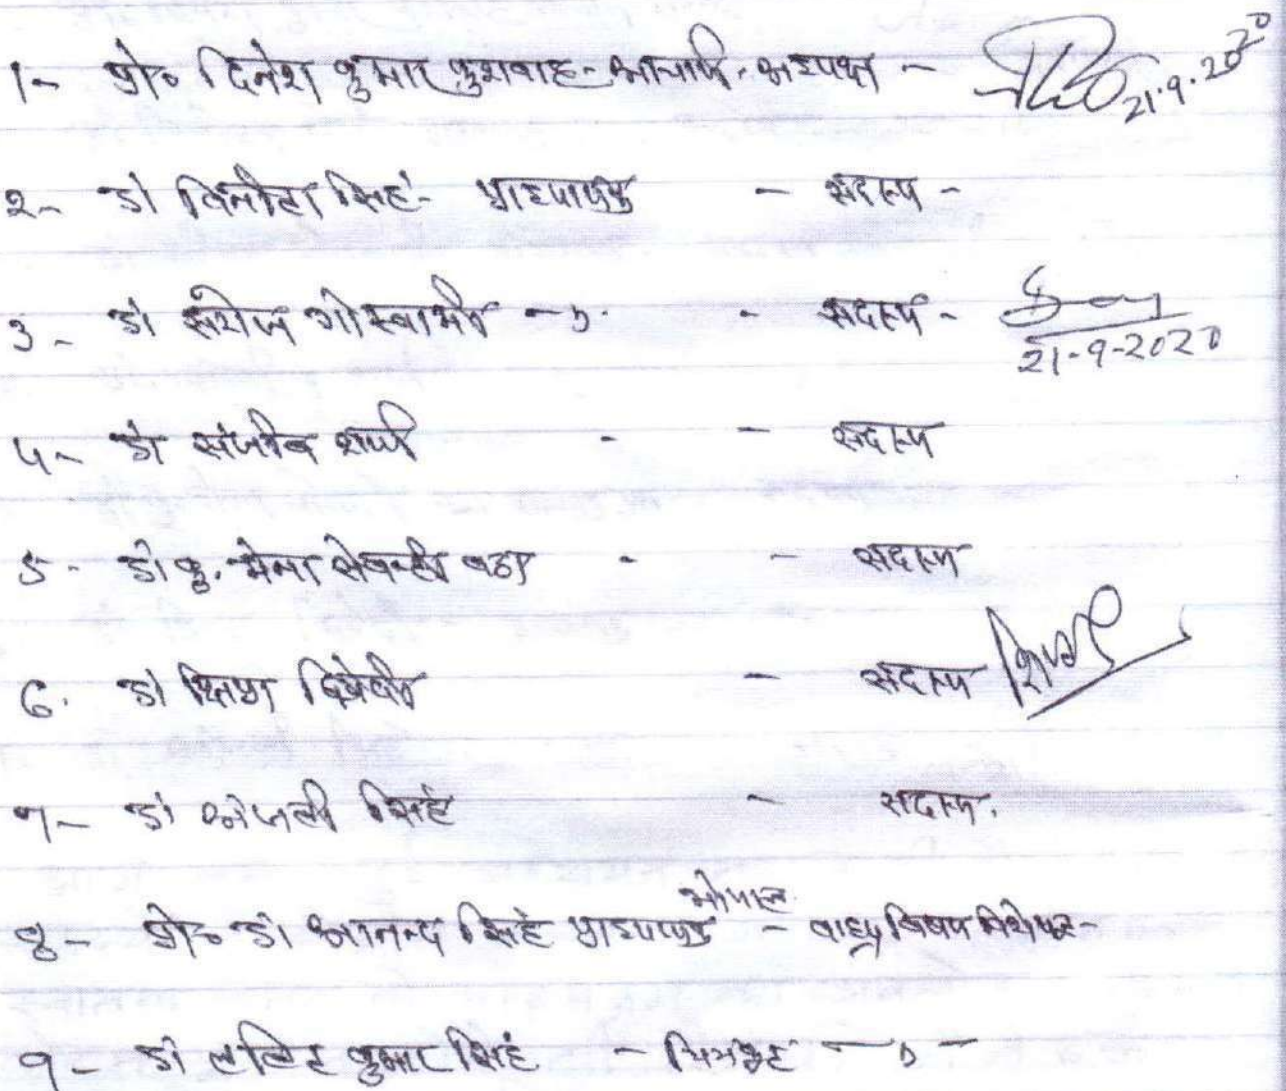 1- प्रो० दिनेश कुमार कुशवाह - आचार्य, अध्यक्ष - 21.9.2020
2- डॉ विनीता सिंह - प्राध्यापक - सदस्य -
3- डॉ सरोज गोस्वामी -"- - सदस्य - 21-9-2020
4- डॉ संजीव शर्मा - - सदस्य
5- डॉ कु. मेना - - सदस्य
6. डॉ द्विवेदी - सदस्य
7- डॉ अंजली सिंह - सदस्य.
8- प्रो० डॉ आनन्द सिंह प्राध्यापक भोपाल - वाह्य विषय विशेषज्ञ -
9- डॉ ललित कुमार सिंह - चित्रकूट -"-